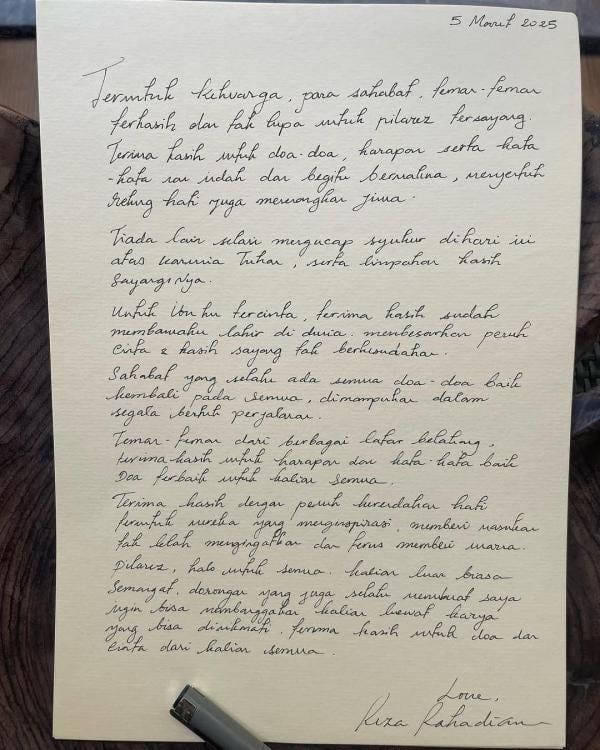 5 Maret 2025
Teruntuk keluarga, para sahabat, teman-teman
terkasih dan tak lupa untuk pilarez tersayang.
Terima kasih untuk doa-doa, harapan serta kata
-kata nan indah dan begitu bermakna, menyentuh
relung hati juga menenangkan jiwa.
Tiada lain selain mengucap syukur dihari ini
atas karunia Tuhan, serta limpahan kasih
sayangNya.
Untuk Ibu ku tercinta, terima kasih sudah
membawaku lahir di dunia. membesarkan penuh
cinta & kasih sayang tak berkesudahan.
Sahabat yang selalu ada semua doa-doa baik
kembali pada semua, dimampukan dalam
segala bentuk perjalanan.
Teman-teman dari berbagai latar belakang,
terima kasih untuk harapan dan kata-kata baik
Doa terbaik untuk kalian semua.
Terima kasih dengan penuh kerendahan hati
teruntuk mereka yang menginspirasi, memberi masukan
tak lelah mengingatkan dan terus memberi warna.
Pilarez, halo untuk semua. kalian luar biasa
Semangat, dorongan yang juga selalu membuat saya
ingin bisa membanggakan kalian lewat karya
yang bisa dinikmati. terima kasih untuk doa dan
cinta dari kalian semua.
Love,
Reza Rahadian